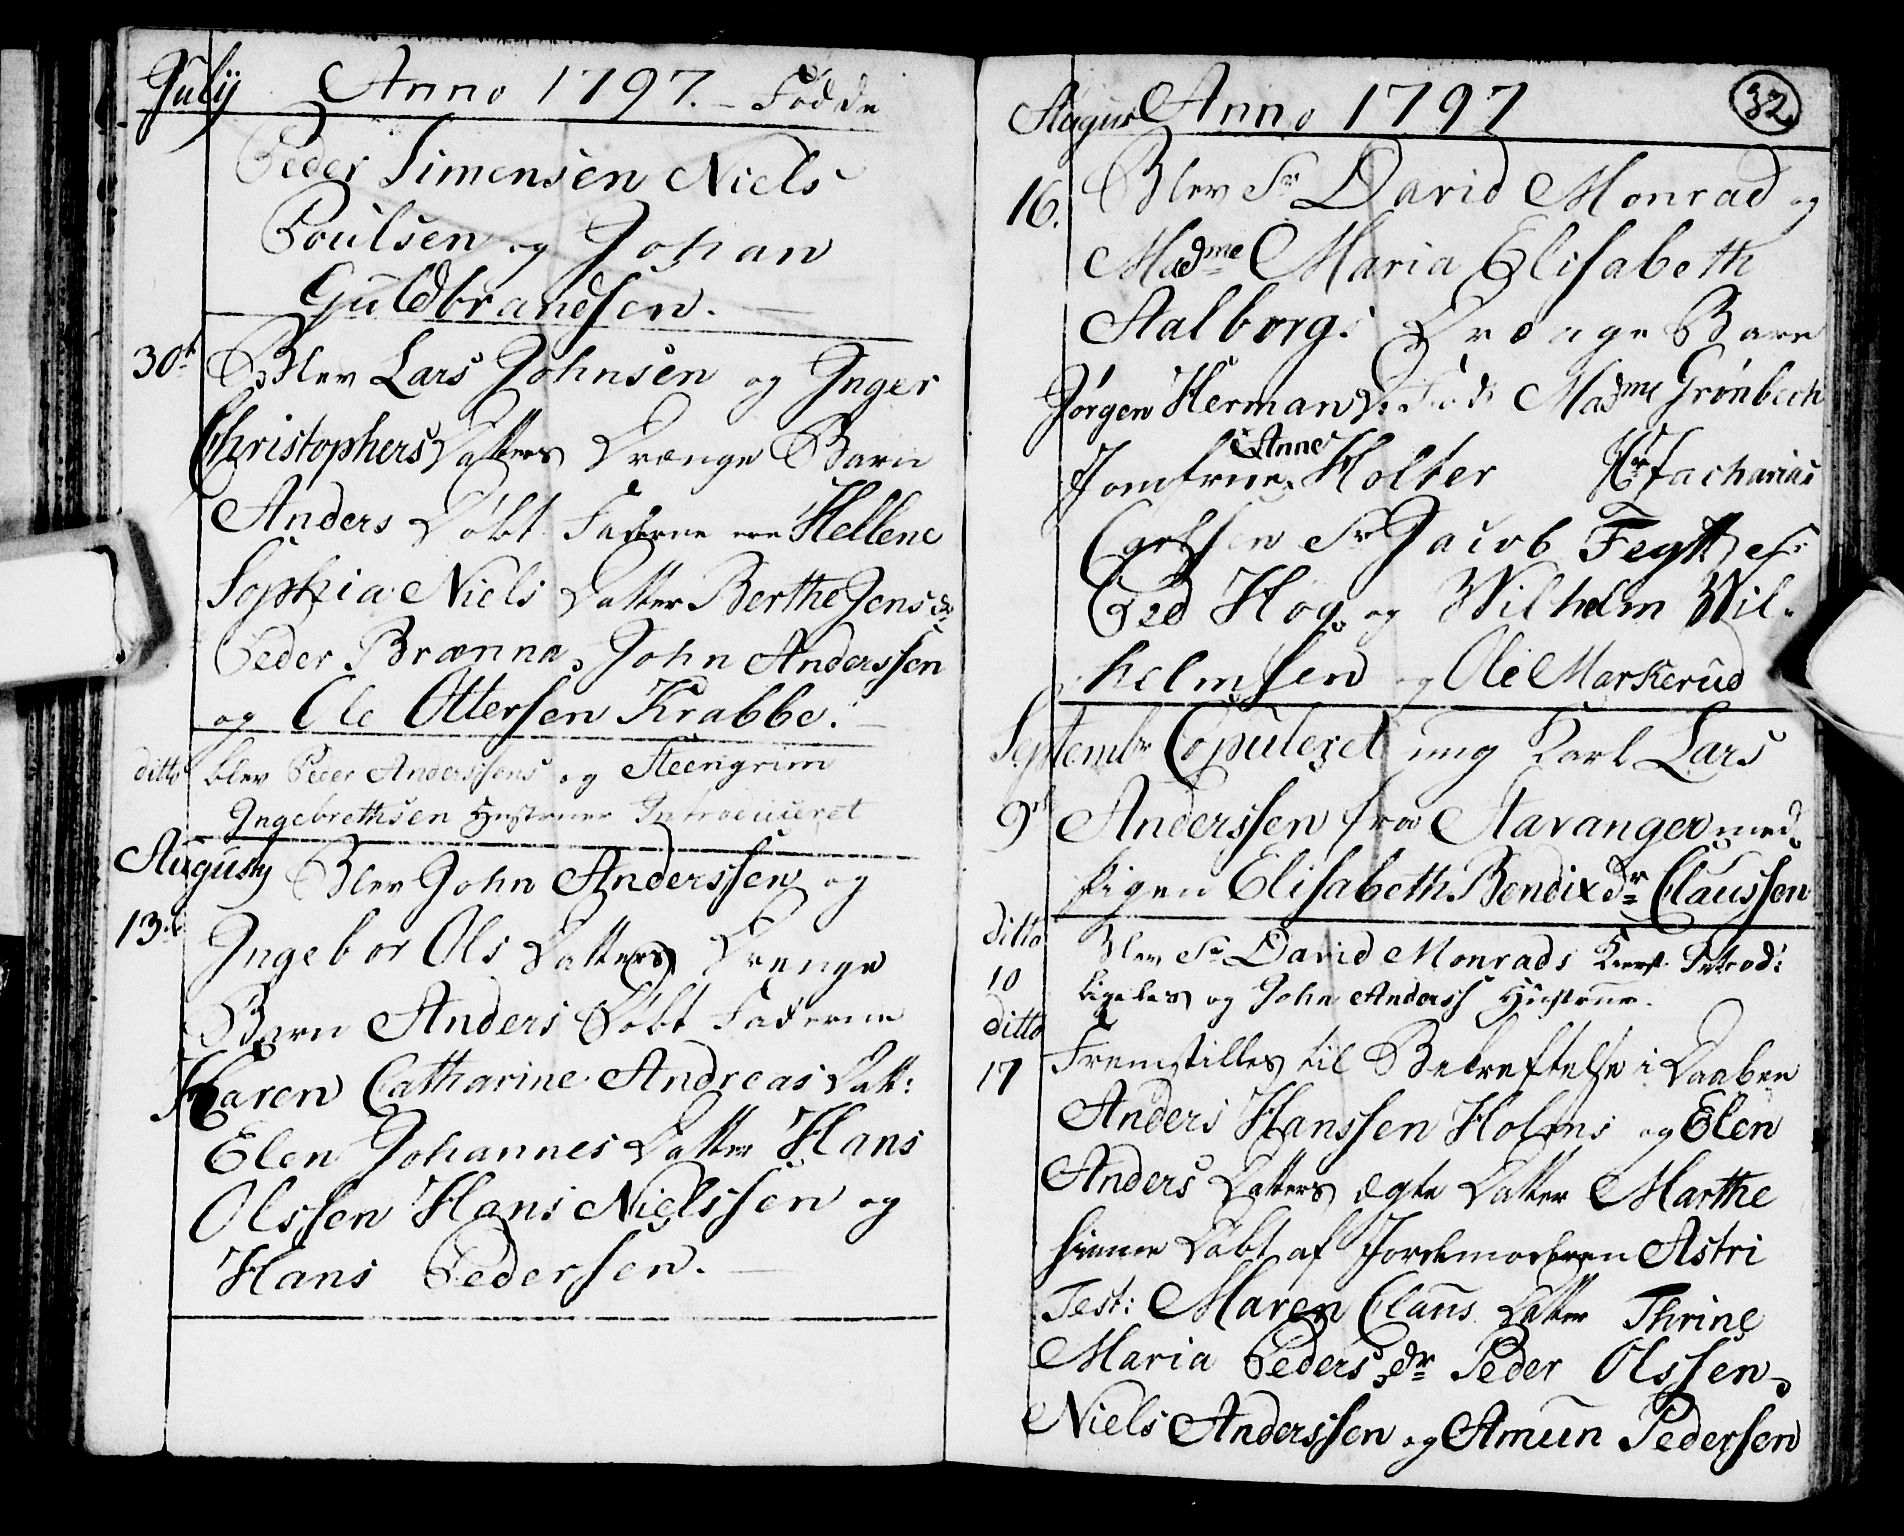 July Anno 1797. – Födde
Peder Simensen Niels
Poulsen og Johan
Guldbrandsen.
30t Blev Lars Johnsen og Inger
Christophers Datters Drænge Barn
Anders Döbt Faderne ere Hellene
Sophia Niels Datter Berthe Jens dr
Peder Brænna, John Anderssen
og Ole Ottersen Krabbe.
ditto blev Peder Anderssens og Steengrim
Ingebrethsen Hustruer Introduceret
Augusty Blev John Anderssen og
13. Ingebor Ols Datters Drenge
Barn Anders Döbt Faderne
Karen Catharine Andreas Datt:
Elen Johannes Datter Hans
Olssen Hans Nielssen og
Hans Pedersen.
Augus Anno 1797 32.
16. Blev Sr David Monrad og
Madme Maria Elisabeth
Aalborgs Drænge Barn
Jörgen Herman Madme Grönbech
Jomfrue Anne Holter Hr Zacharias
Carlsen Sr Jacob Fegth
Ped Hog og Wilhelm Wil-
helmsen og Ole Markerud
Septembr Copuleret ung Karl Lars
9d Anderssen fra Stavanger med
Pigen Elisabeth Bendixdr Claussen
ditto 10 Blev Sr David Monrads Introd:
ligeledes og John Anderss Hustrue.
ditto 17 Fremstilles til Bekreftelse i Daaben
Anders Hanssen Holms og Elen
Anders Datters ægte Datter Marthe
hiemme Döbt af Jordemoderen Astri
Test: Maren Claus Datter Thrine
Maria Peders dr Peder Olssen,
Niels Anderssen og Amun Pedersen